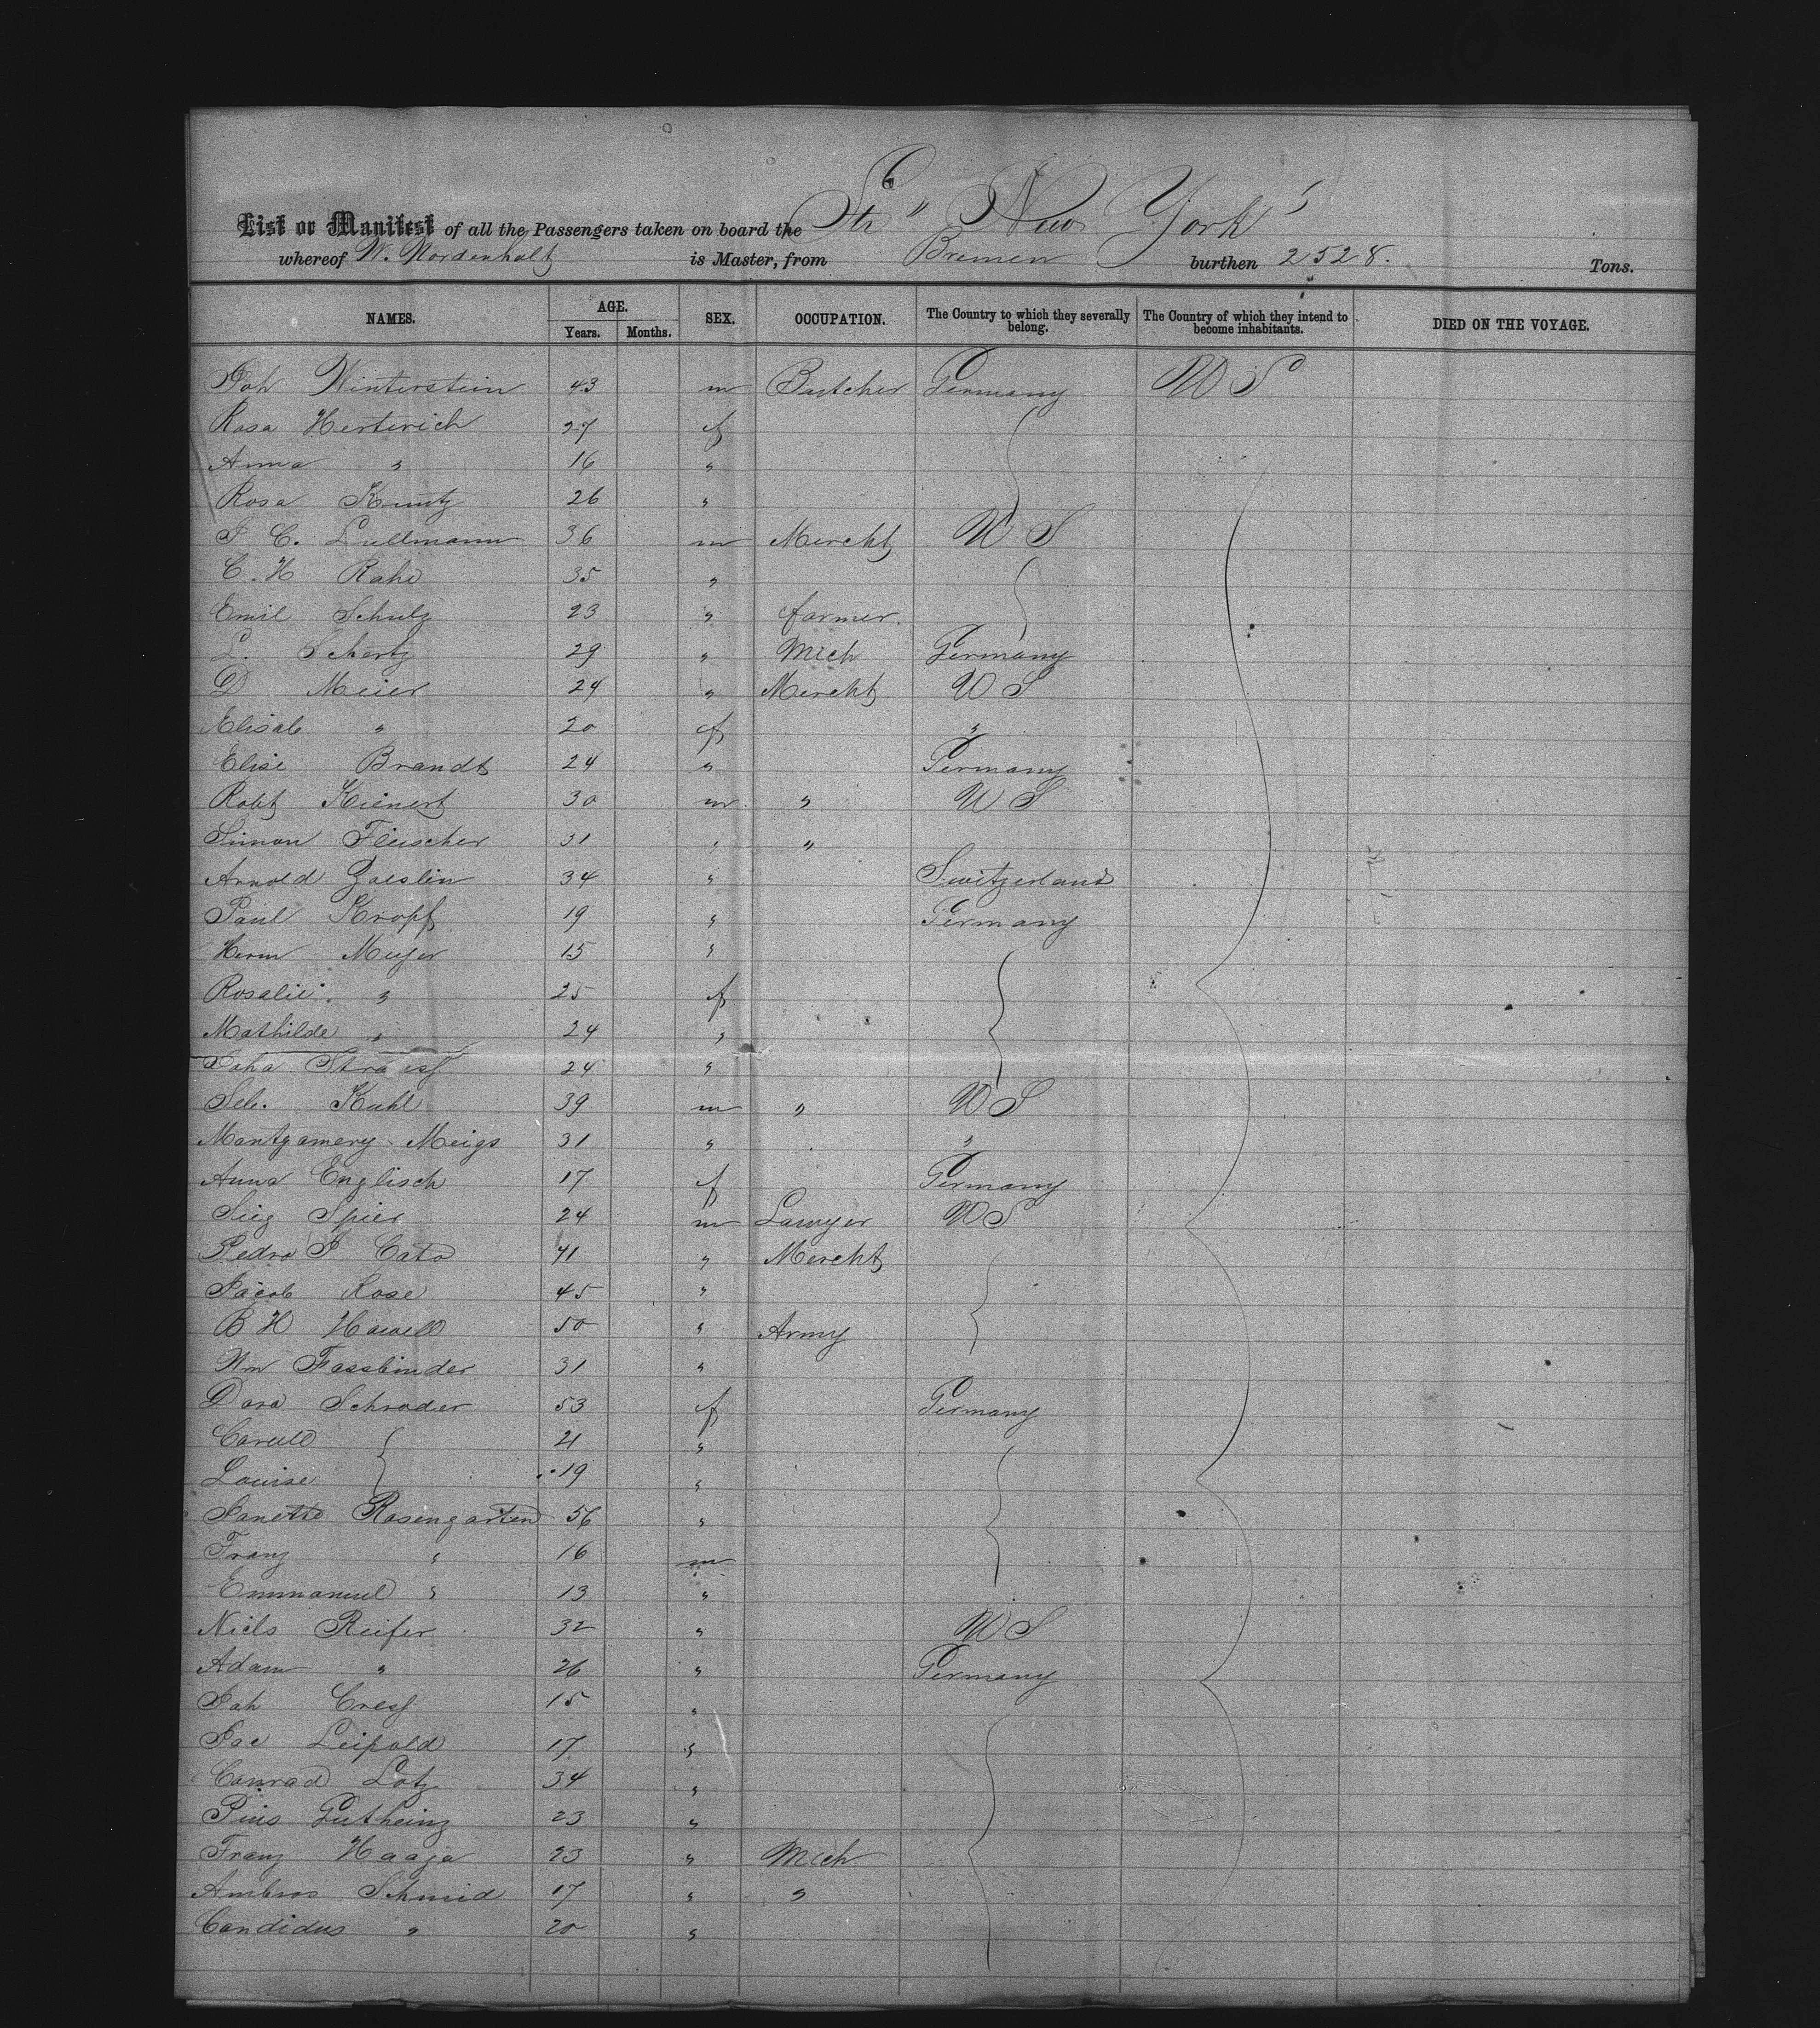 List or Manifest of all the Passengers taken on board the Str " New York "
whereof W. Nordenholt is Master, from Bremen burthen 2528. Tons.
NAMES. AGE. Years. Months. SEX. OCCUPATION. The Country to which they severally belong. The Country of which they intend to become inhabitants. DIED ON THE VOYAGE.
Joh Winterstein 43 m Butcher Germany U S
Rosa Herterich 27 f
Anna " 16 "
Rosa Kuntz 26 "
J C. Lullmann 36 m Mercht U S
C. H Rahe 35 "
Emil Schulz 23 " farmer.
L. Schertz 29 " Mich Germany
D Meier 24 " Mercht U S
Elisab " 20 f "
Elise Brandt 24 " Germany
Robt Kienert 30 m " U S
Simon Fleischer 31 " "
Arnold Gaeslin 34 " Switzerland
Paul Kropf 19 " Germany
Herm Meyer 15 "
Rosalie " 25 f
Mathilde " 24 "
Strauss 24 "
Seb. Kuhl 39 m " U S
Montgomery Meigs 31 " "
Anna Englisch 17 f Germany
Sieg Spier 24 m Lawyer U S
Pedro J Cato 41 " Mercht
Jacob Rose 45 "
B H Howell 50 " Army
Wm Fassbinder 31 "
Dora Schrader 53 f Germany
21 "
Louise 19 "
Janette Rosengarten 56 "
Franz " 16 m
Emmanuel " 13 "
Niels Reifer 32 " U S
Adam " 26 " Germany
Joh Cress 15 "
Jac Leipold 17 "
Conrad Lotz 34 "
Pius Gutheinz 23 "
Franz Haaja 23 " Mich
Ambros Schmid 17 " "
Candidus " 20 "